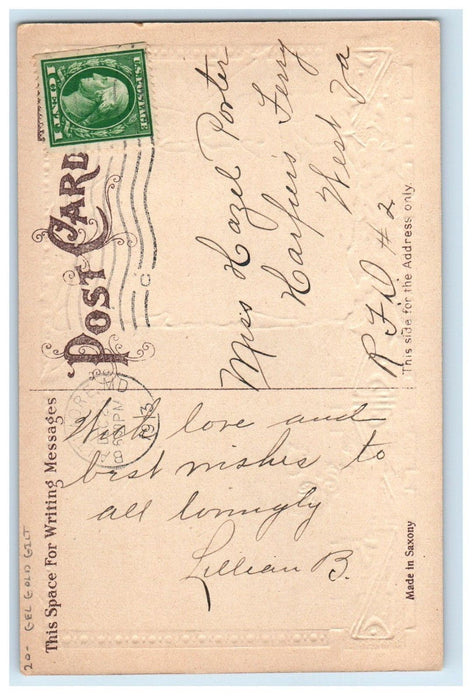 1 CENT 1
U.S. POSTAGE
POST CARD
This Space For Writing Messages
MD
830 PM
1913
With love and
best wishes to
all lovingly
Lillian B.
Miss Hazel Porter
Harpers Ferry
West Va
R F D # 2
This side for the Address only.
Made in Saxony
20- GEL GOLD GILT